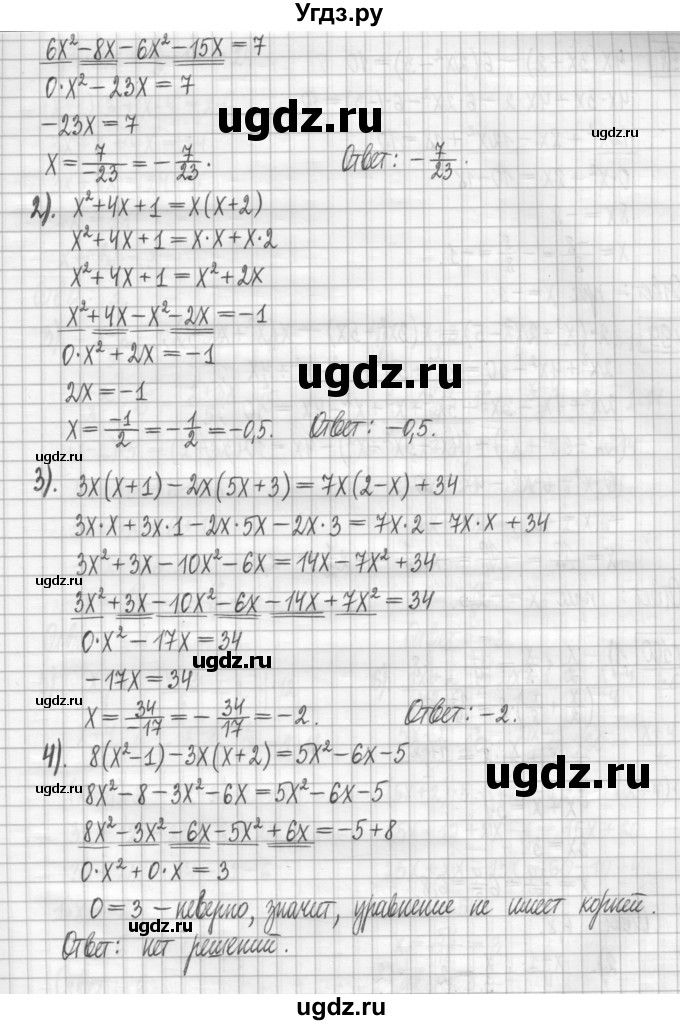 Угдз.ру
6x² − 8x − 6x² − 15x = 7
0·x² − 23x = 7
−23x = 7
ugdz.ru
ugdz.ru
x = 7/−23 = −7/23. Ответ: −7/23.
ugdz.ru
2). x² + 4x + 1 = x(x + 2)
x² + 4x + 1 = x·x + x·2
x² + 4x + 1 = x² + 2x
x² + 4x − x² − 2x = −1
0·x² + 2x = −1
ugdz.ru
2x = −1
x = −1/2 = −1/2 = −0,5. Ответ: −0,5.
ugdz.ru
3). 3x(x + 1) − 2x(5x + 3) = 7x(2 − x) + 34
3x·x + 3x·1 − 2x·5x − 2x·3 = 7x·2 − 7x·x + 34
3x² + 3x − 10x² − 6x = 14x − 7x² + 34
ugdz.ru
3x² + 3x − 10x² − 6x − 14x + 7x² = 34
0·x² − 17x = 34
ugdz.ru
−17x = 34
ugdz.ru
x = 34/−17 = −34/17 = −2. Ответ: −2.
4). 8(x² − 1) − 3x(x + 2) = 5x² − 6x − 5
ugdz.ru
8x² − 8 − 3x² − 6x = 5x² − 6x − 5
8x² − 3x² − 6x − 5x² + 6x = −5 + 8
ugdz.ru
0·x² + 0·x = 3
0 = 3 − неверно, значит, уравнение не имеет корней.
ugdz.ru
Ответ: нет решений.
ugdz.ru